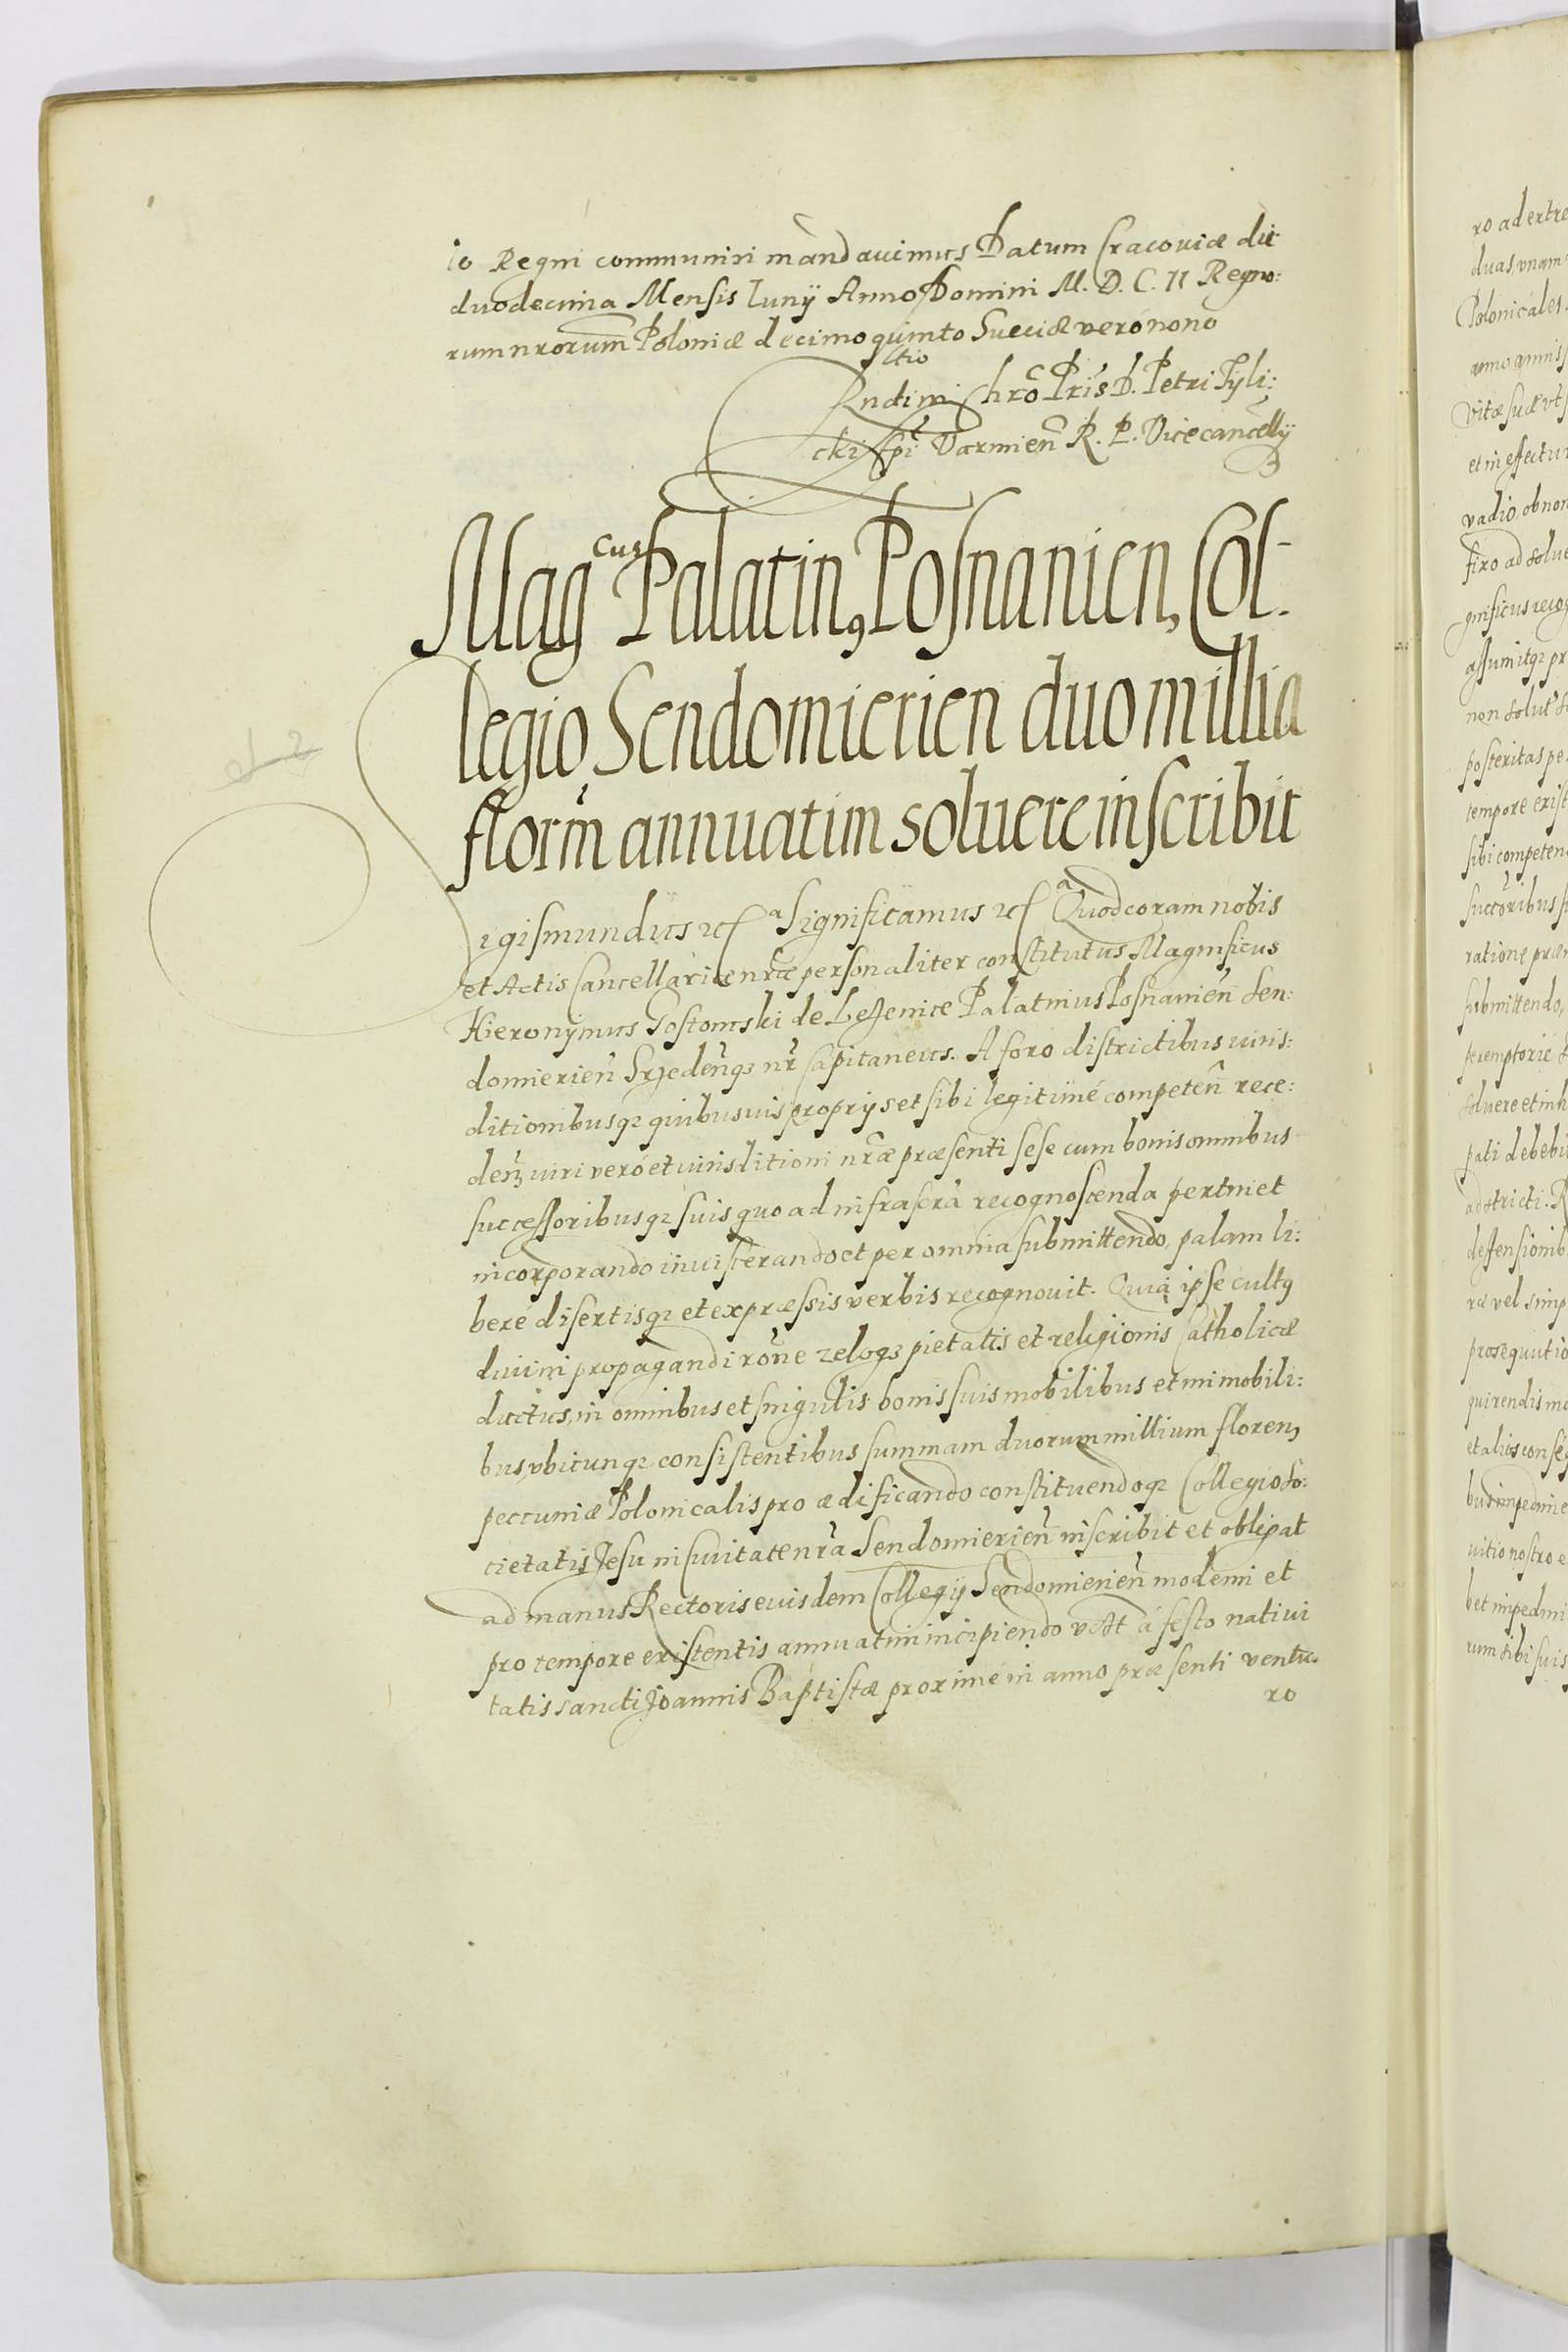 io Regni communiri mandavimus Datum Cracoviæ die
duodecima Mensis Iunij Anno Domini M. D. C. II Regno:
rum nrorum Poloniæ decimoquinto Sueciæ verò nono
ltio
Rndi in Chro Pris D. Petri Tyli:
cki Epi Varmien R. P. Vicecancellij
Magcus Palatin9 Posnanien, Col-
legio Sendomierien duo millia
florm annuatim soluere inscribit
igismundus etc Significamus etc Quod coram nobis
et Actis Cancellariæ nræ personaliter constitutus Magnificus
Hieronymus Gostomski de Lezenice Palatinus Posnanien Sen:
domierien Srzedenq3 nr Capitaneus. A foro districtibus iuris:
ditionibusq3 quibusuis proprijs et sibi legitimé competen rece:
den, iuri veró et iurisditioni nræ præsenti sese cum bonis omnibus
successoribusq3 suis quo ad infrascra recognoscenda pertinet
incorporando inviscerando et per omnia submittendo, palam li:
beré disertisq3 et expræssis verbis recognouit. Quia ipse cult9
divini propagandi rone zeloq3 pietatis et religionis Catholicæ
ductus, in omnibus et singulis bonis suis mobilibus et immobili:
bus, vbicunq3 consistentibus summam duorum millium floren,
peccuniæ Polonicalis pro ædificando constituendoq3 Collegio So:
cietatis Jesu in Civitate nra Sendomierien inscribit et obligat
ad manus Rectoris eiusdem Collegij Sendomierien moderni et
pro tempore existentis annuatim incipiendo á festo nativi
tatis sancti Joannis Baptistæ proximé in anno præsenti ventu-
ro
ro
duas, vnam
Polonicales.
et in effectu
posteritas pe
sibi competen
submittendo,
peremptorie
pati debebi
adstricti. R
defensionib
ræ vel simp
uitio nostro e